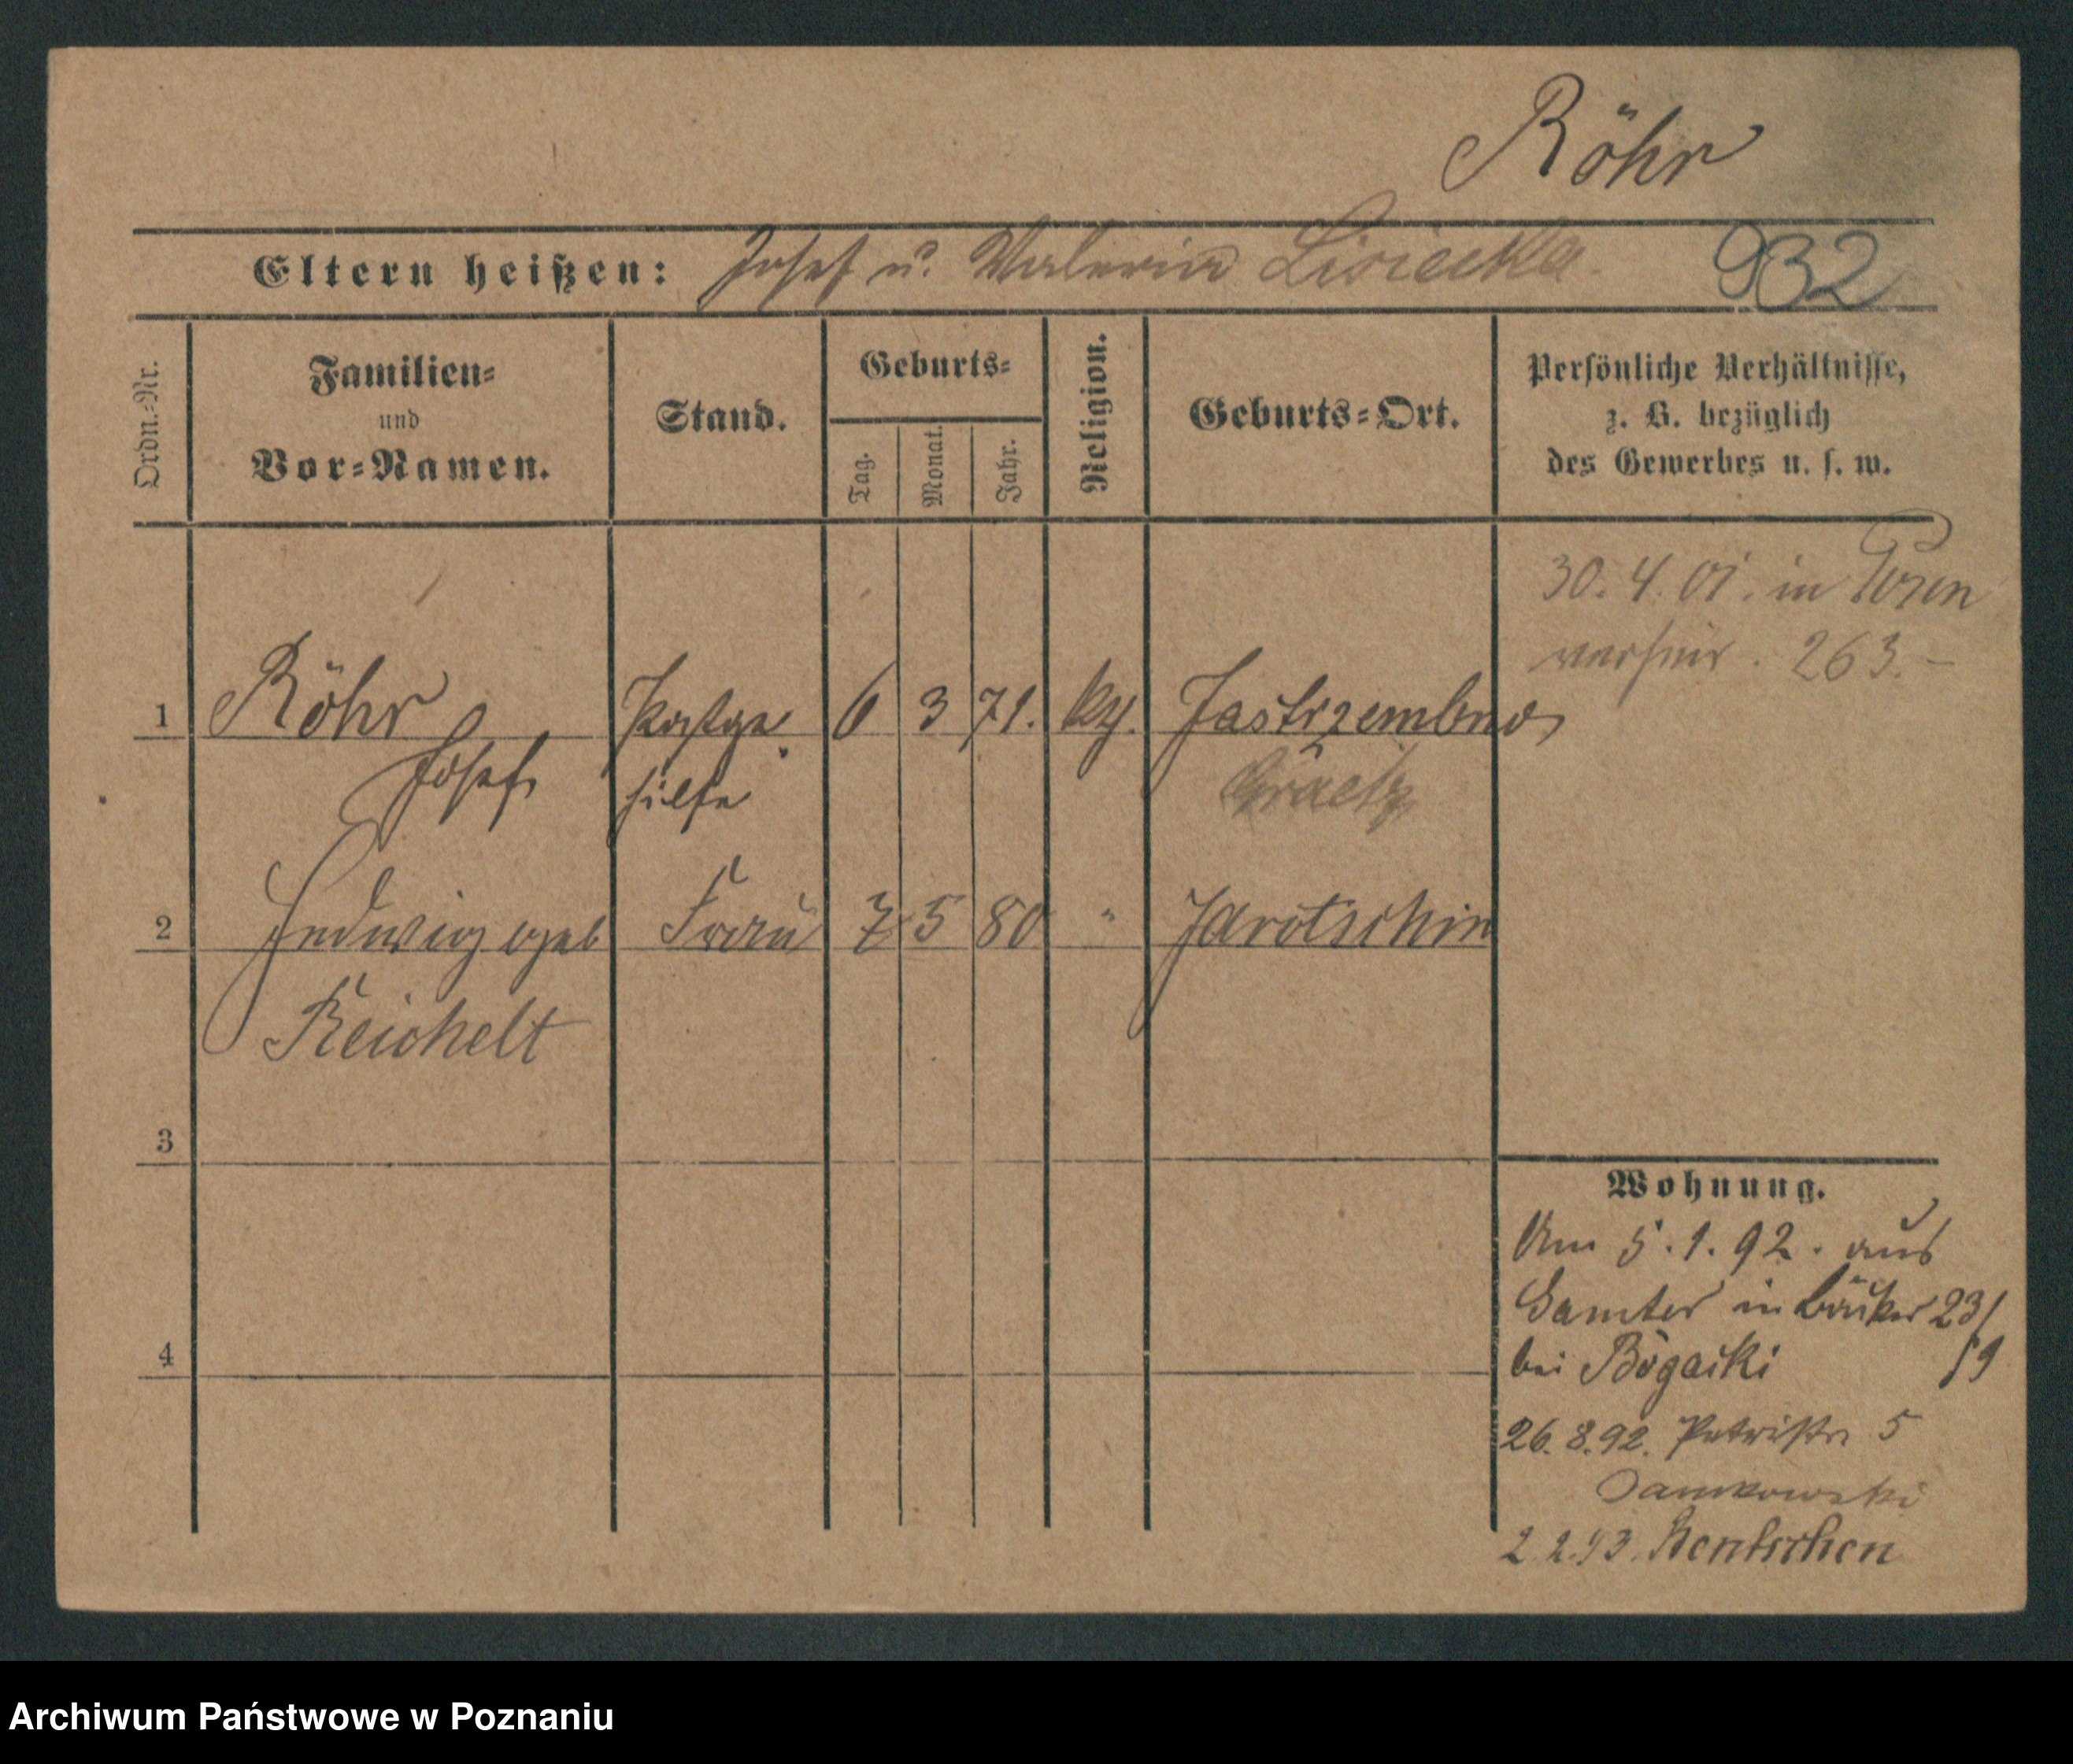 Röhr
Eltern heißen: Josef u. Valeria Lisiecka.
932
Ordn.-Nr.
Familien-
und
Vor-Namen.
Stand.
Geburts-
Tag.
Monat.
Jahr.
Religion.
Geburts-Ort.
Persönliche Verhältnisse,
z. B. bezüglich
des Gewerbes u. s. w.
30. 4. 01. in Posen
263.-
1 Röhr Postge- 6 3 71. Jastrzembno,
Josef hilfe Graetz
2 Hedwig geb Frau 7 5 80 " Jarotschin
Reichelt
3
4
Wohnung.
Am 5. 1. 92. aus
Samter in Bäcker 23/
bei Bogacki 19
26. 8. 92. Petristr. 5
2. 2. 93. Bentschen
Archiwum Państwowe w Poznaniu